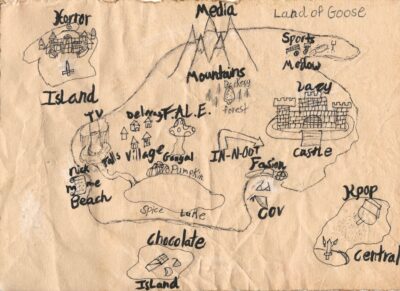 Horror
Island
Media
Mountains
Land of Goose
Sports
Medow
forest
Lazy
Castle
TV
Falls
Delmas
Village
F.A.L.E.
Googal
Pumpkin
IN-N-OUT
Fasion
COV
Nick
me
Beach
Spice Lake
Chocolate
Island
Kpop
Central